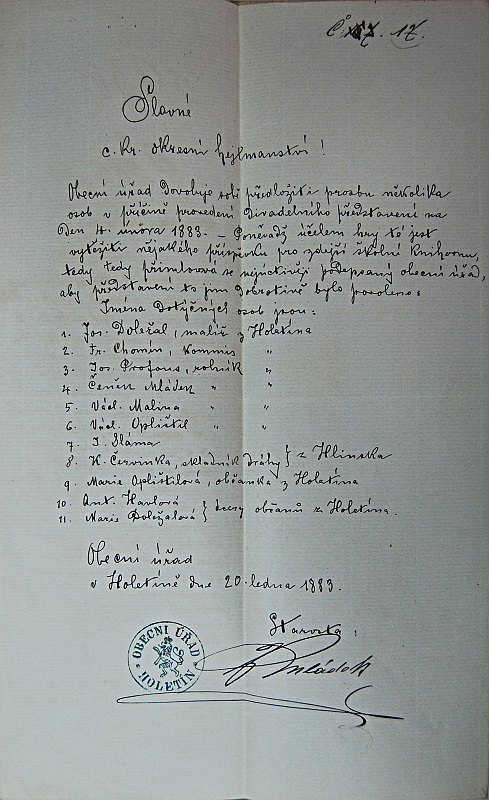 Č 17.
Slavné
c. kr. okresní hejtmanství!
Obecní úřad dovoluje sobě předložiti prosbu několika
osob v příčině provedení divadelního představení na
den 4. února 1883. – Poněvadž účelem hry té jest
vytěžiti nějakého příspěvku pro zdejší školní knihovnu,
tedy tedy přimlouvá se nejuctivěji podepsaný obecní úřad,
aby představení to jim dobrotivě bylo povoleno.
Jména dotyčných osob jsou:
1. Jos. Doležal, malíř z Holetína
2. Fr. Chomin, kommis „
3. Jos. Profous, rolník „
4. Čeněk Mládek „ „
5. Václ. Malina „ „
6. Václ. Oplištil „ „
7. J. Sláma
8. K. Červinka, skladník dráhy } z Hlinska
9. Marie Oplištilová, občanka z Holetína
10. Ant. Havlová
11. Marie Doležalová } dcery občanů z Holetína.
Obecní úřad
v Holetíně dne 20. ledna 1883.
Starosta:
Mládek
OBECNI ÚŘAD
HOLETÍN